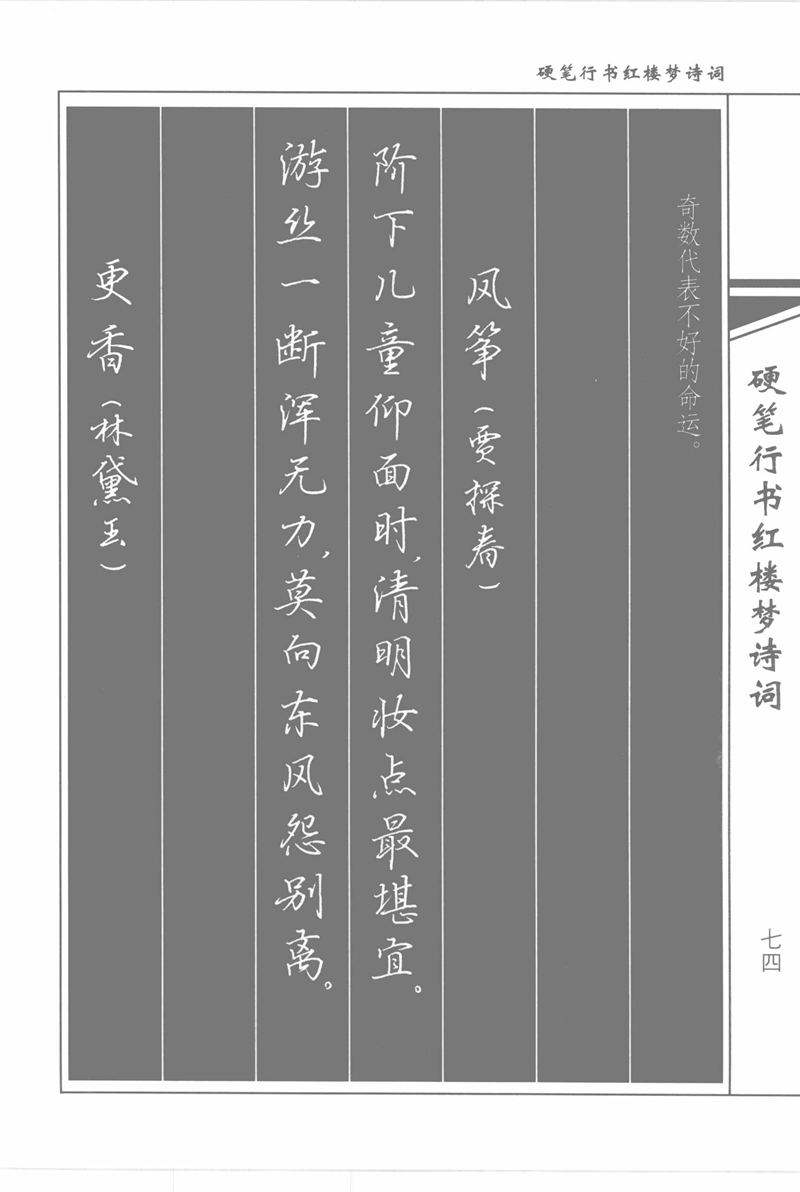 硬笔行书红楼梦诗词
奇数代表不好的命运。
风筝(贾探春)
阶下儿童仰面时,清明妆点最堪宜。
游丝一断浑无力,莫向东风怨别离。
更香(林黛玉)
硬笔行书红楼梦诗词
七四